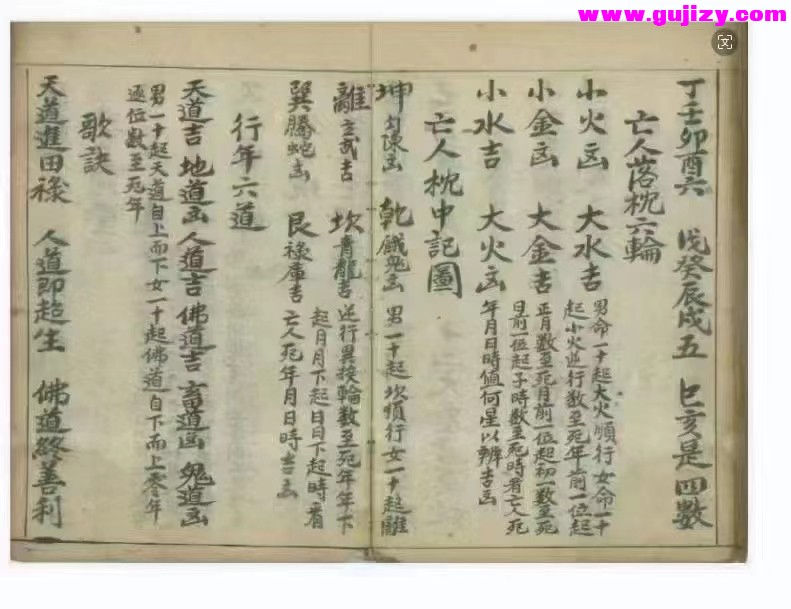 www.gujizy.com
丁壬卯酉六 戊癸辰戌五 巳亥是四數
亡人落枕六輪
小火凶 大水吉
小金凶 大金吉
小水吉 大火凶
男命一十起大火順行女命一十
起小火逆行數至死年前一位起
正月數至死月前一位起初一數至死
日前一位起子時數至死時看亡人死
年月日時值何星以辨吉凶
亡人枕中記圖
坤勾陳凶 乾餓鬼凶
離玄武吉 坎青龍吉
巽騰蛇凶 艮祿庫吉
男一十起坎順行女一十起離
逆行異按輪數至死年年下
起月月下起日日下起時看
亡人死年月日時吉凶
行年六道
天道吉 地道凶 人道吉 佛道吉 畜道凶 鬼道凶
男一十起天道自上而下女一十起佛道自下而上零年
逐位數至死年
歌訣
天道進田祿 人道即超生 佛道終善利